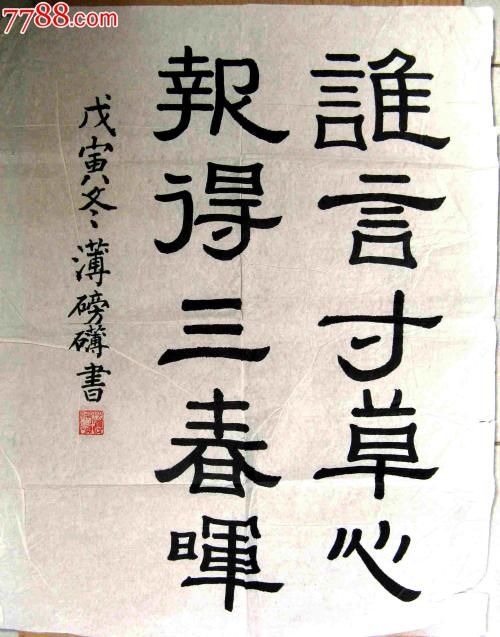 誰言寸草心
報得三春暉
戊寅冬薄磅礴書
7788.com